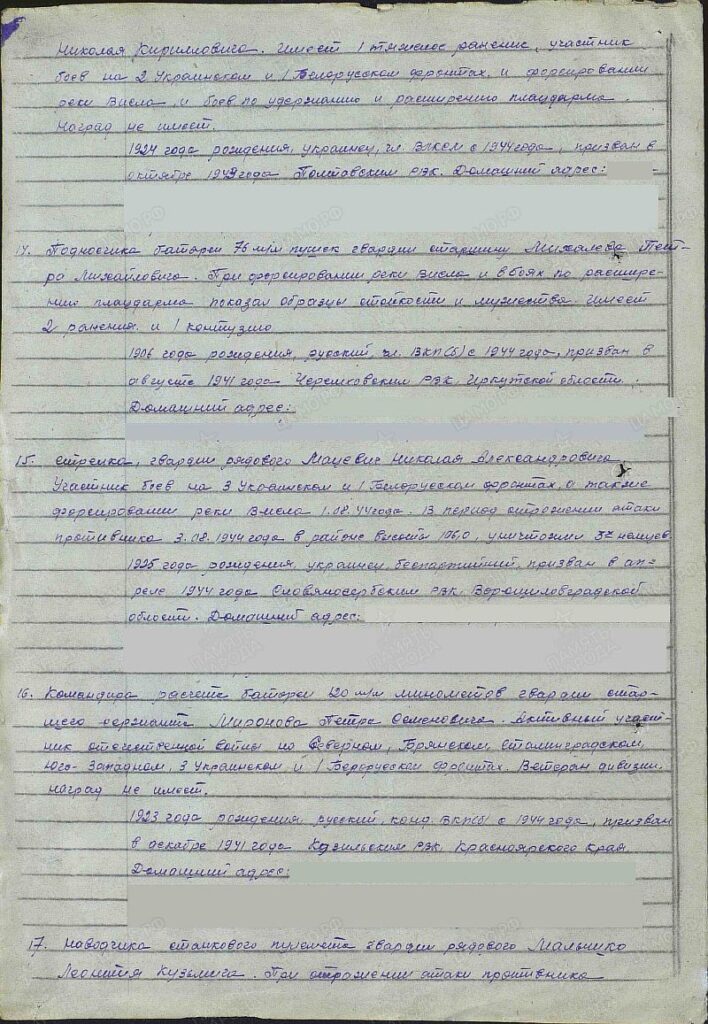 Николая Кирилловича. Имеет 1 тяжелое ранение, участник
боев на 2 Украинском и 1 Белорусском фронтах, и форсировании
реки Висла и боев по удержанию и расширению плацдарма.
Наград не имеет.
1924 года рождения, украинец, чл. ВЛКСМ с 1944 года, призван в
октябре 1943 года Полтавским РВК. Домашний адрес:
14. Подносчика батареи 76 м/м пушек гвардии старшину Михалева Пет-
ра Михайловича. При форсировании реки Висла и в боях по расшире-
нию плацдарма показал образцы стойкости и мужества. Имеет
2 ранения и 1 контузию
1906 года рождения, русский, чл. ВКП(б) с 1944 года, призван в
августе 1941 года Черемховским РВК, Иркутской области.
Домашний адрес:
15. Стрелка, гвардии рядового Мацевич Николая Александровича
Участник боев на 3 Украинском и 1 Белорусском фронтах, а также
форсировании реки Висла 1.08.44 года. В период отражения атаки
противника 3.08.1944 года в районе высоты 196,0, уничтожил немцев
1925 года рождения, украинец, беспартийный, призван в ап-
реле 1944 года Славяносербским РВК, Ворошиловградской
области. Домашний адрес:
16. Командира расчета батареи 120 м/м минометов гвардии стар-
шего сержанта Миронова Петра Семеновича. Активный участ-
ник отечественной войны на Северном, Брянском, Сталинградском,
Юго-Западном, 3 Украинском и 1 Белорусском фронтах. Ветеран дивизии.
Наград не имеет.
1923 года рождения, русский, канд. ВКП(б) с 1944 года, призван
в декабре 1941 года РВК, Красноярского края
Домашний адрес:
17. Наводчика станкового пулемета гвардии рядового Малышко
Леонтия Кузьмича. При отражении атаки противника